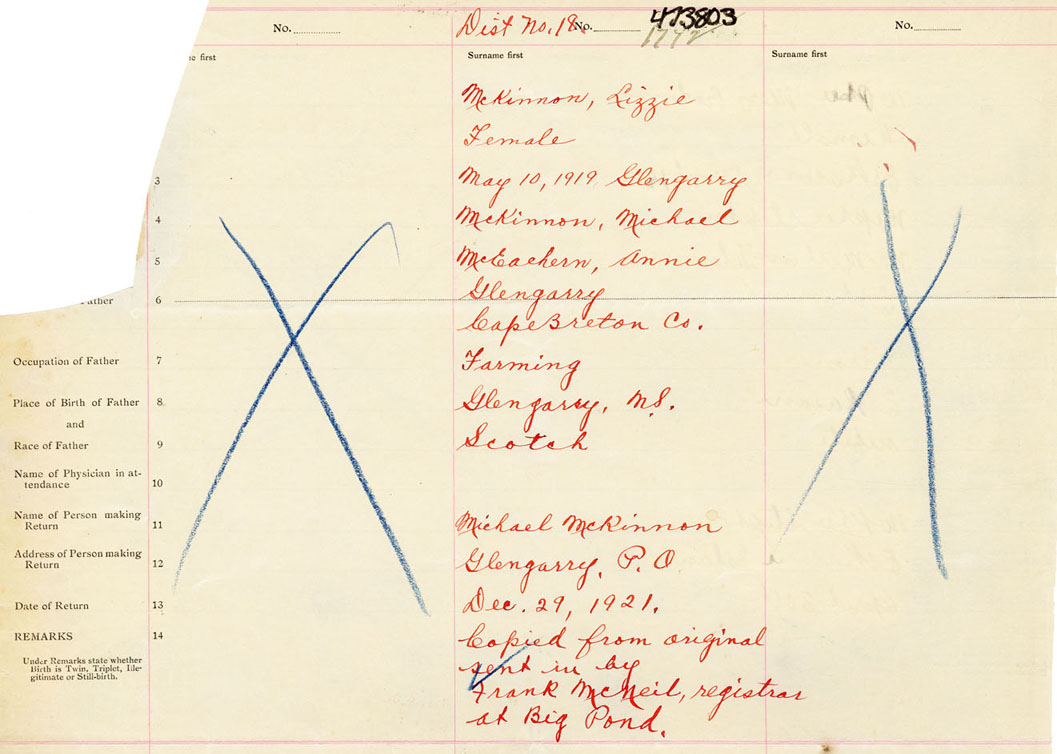 No.
Dist No. 18. No. 473803
No.
Surname first
Surname first
McKinnon, Lizzie
Female
3 May 10, 1919 Glengarry
4 McKinnon, Michael
5 McEachern, Annie
Father 6 Glengarry
Cape Breton Co.
Occupation of Father 7 Farming
Place of Birth of Father 8 Glengarry, N.S.
and
Race of Father 9 Scotch
Name of Physician in at-
tendance 10
Name of Person making
Return 11 Michael McKinnon
Address of Person making
Return 12 Glengarry, P.O.
Date of Return 13 Dec. 29, 1921.
REMARKS 14 Copied from original
Under Remarks state whether
Birth is Twin, Triplet, Ille-
gitimate or Still-birth.
sent in by
Frank McNeil, registrar
at Big Pond.